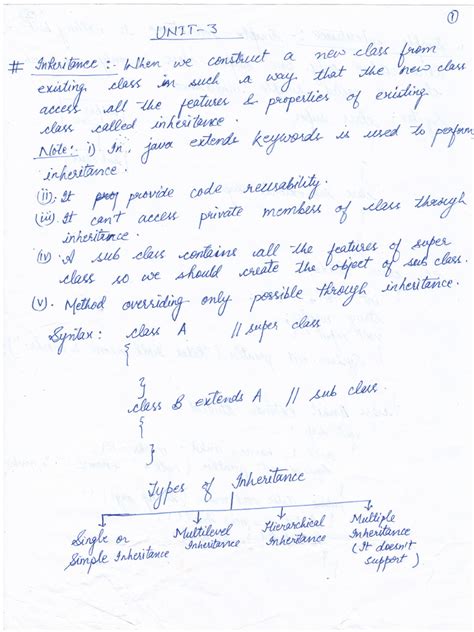 1
UNIT-3
# Inheritance :- When we construct a new class from
existing class in such a way that the new class
access all the features & properties of existing
class called inheritance.
Note:- i) In java extends keywords is used to perform
inheritance.
(ii). It provide code reusability.
(iii). It can't access private members of class through
inheritance.
(iv). A sub class contains all the features of super
class so we should create the object of sub class.
(v). Method overriding only possible through inheritance.
Syntax : class A // super class
{
}
class B extends A // sub class.
{
}
Types of Inheritance
Single or Simple Inheritance
Multilevel Inheritance
Hierarchical Inheritance
Multiple Inheritance (It doesn't support)